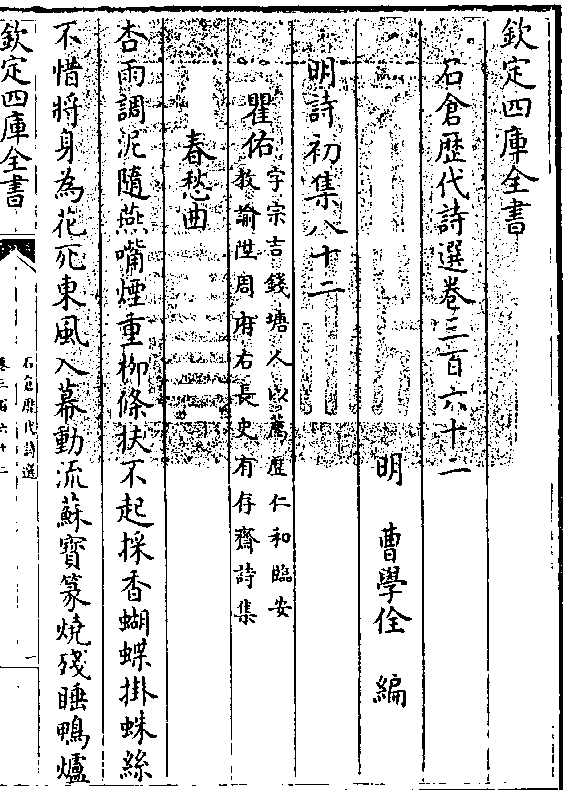 欽定四庫全書
石倉歴代詩選卷三百六十二
明　曹學佺　編
明詩初集八十二
瞿佑字宗吉錢塘人以薦歴仁和臨安
教諭陞周府右長史有存齋詩集
春愁曲
杏雨調泥隨燕嘴煙重柳條扶不起採香蝴蝶掛蛛絲
不惜將身為花死東風入幕動流蘇寳篆燒殘睡鴨爐
欽定四庫全書
石倉歴代詩選
卷三百六十二
一